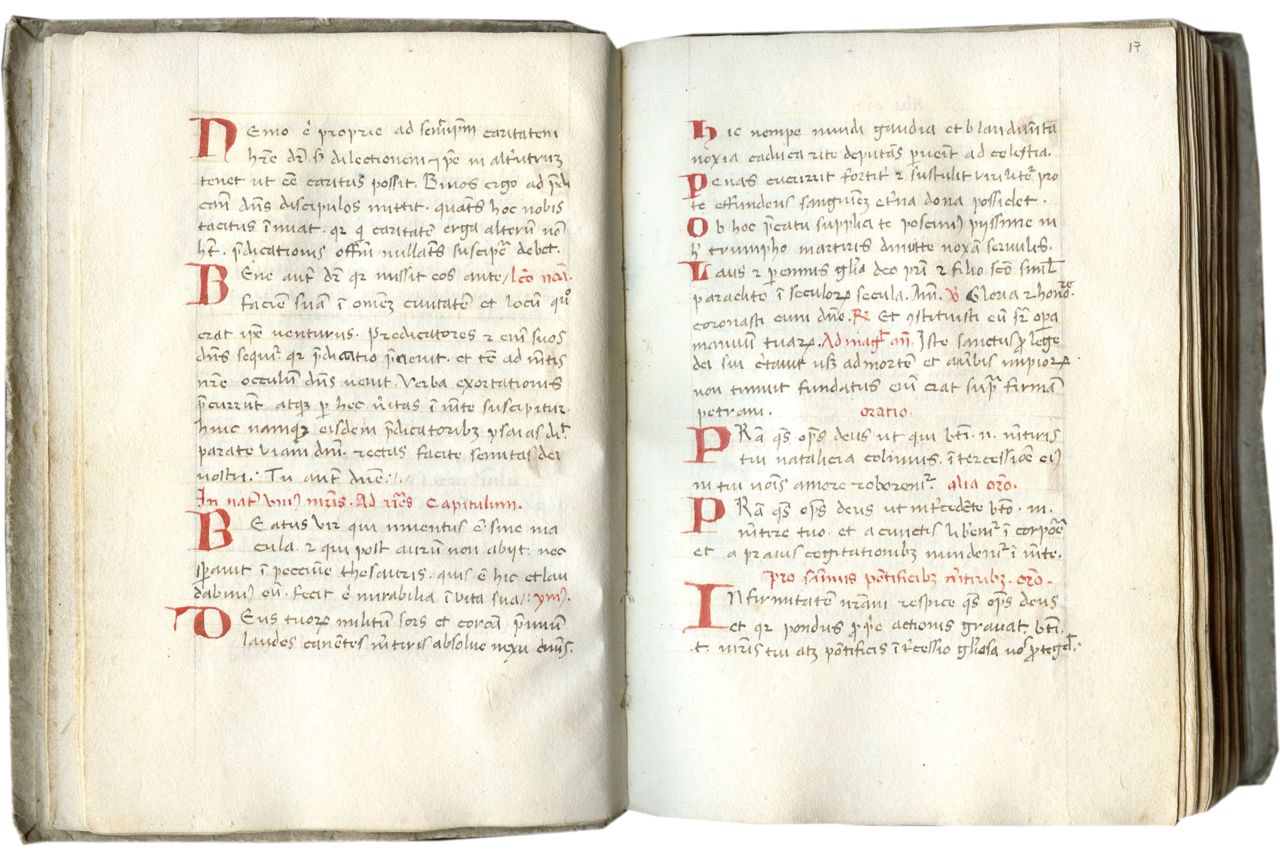 Nemo ē proprie ad semīipm̄ caritatem
hr̄e dr̄. dilectionem ī alt'utruz
tenet ut cē̄ caritas possit. Binos ergo ad p̄di
cam̄ dn̄s discipulos mittit. quatēs hoc nobis
tacitus īnuat. qr q caritatē erga alterū non
ht̄. p̄dicationis offm̄ nullatēs suscipe᷑ debet.
Bene aut̄ dr̄ qr missit eos ante /. lcō
faciē suā ī omēz ciuitatē et locū quo
erat ip̄e venturus. Predicatores .n. enī suos
dn̄s sequit᷑ qr p̄dicatio p̄uenit. et tē ad mētis
nr̄e occulum dn̄s uenit. Verba exortationis
p̄currūt. atqz p hec. u'itas ī mēte suscipitur.
hinc namqz eisdem p̄dicatoribz ysaias dic̄.
parate viam dnī. rectas facite semitas dei
nostri. Tu aut̄ dn̄e.
In nat̄ uniꝰ mr̄is. Ad Capitulum.
Beatus vir qui inuentus ē sine ma
cula. ⁊ qui post aurū non abijt: nec
sp̄auit ī peccūie thesauris. quis ē hic et lau
dabimꝰ eū. fecit .n. mirabilia ī uita sua: ymꝰ.
Deus tuoꝝ militū sors et corōa p̄mium
laudes canētes mr̄tiris absolue nexu crīnis.
17
Hic nempe mundi gaudia et blandimēta
noxia caduca rite deputās puenit ad celestia.
Penas cucurrit fortit᷑ ⁊ sustulit uirilit᷑ pro
te effundens sanguinez et'na dona possidet.
Ob hoc p̄catu supplici te poscimꝰ pijssime in
h̄ triumpho martiris dimitte noxā seruulis.
Laus ⁊ p̄ennis glīa deo pr̄i ⁊ filio scō simul
paraclito ī seculoꝝ secula. Am̄. ℣ Gloria ⁊ honore.
coronasti eum dn̄e. ℟ Et ↄstituisti eū sr̄ opa
manuum tuaꝝ. Ad maḡt. an̄. Iste sanctus p lege
dei sui c'tauit usz ad mortē et a u'bis impioꝝ
non timuit fundatus enī erat supr̄ firmā
petram. oratio.
PRā qs̄ op̄s deus ut qui bt̄i .n. mr̄tiris
tui natalicia colimus. īt'cessiōe eiꝰ
in tui nōis amore roboremur᷑. alia orō.
PRā qs̄ op̄s deus ut īt'cedēte bt̄o .n.
mr̄tire tuo. et a cunctis lib'emur᷑ ī corpore
et a prauis cogitationibz mundemur᷑ ī mēte.
Pro summis pōtificibz mr̄tiribz. orō.
Infirmitatē nr̄am respice qs̄ op̄s deus
et qr pondus pp̄e actionis grauat. bt̄i.
.t. mr̄is tui atz pōtificis īt'cessio gl̄iosa nos p̄tegat.